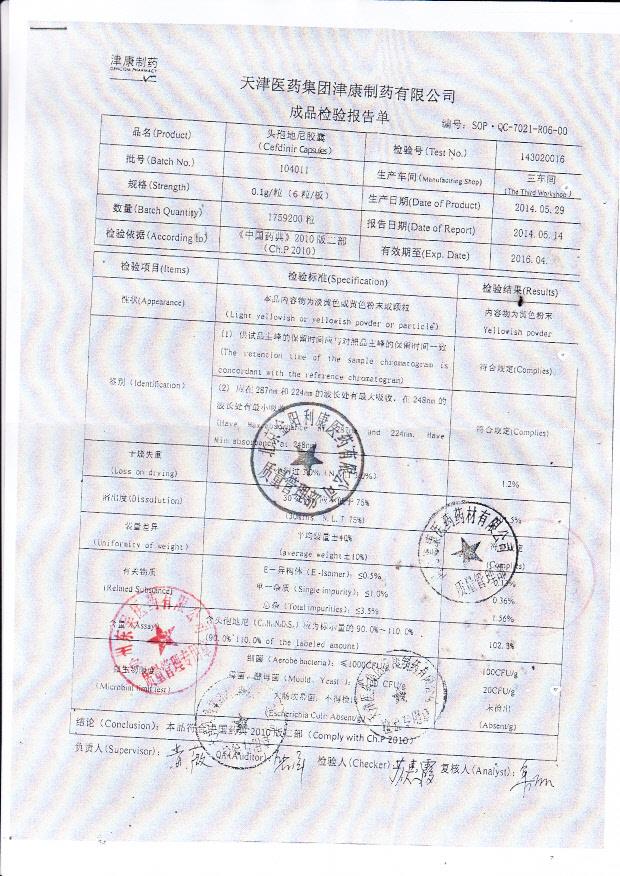 津康制药
天津医药集团津康制药有限公司
成品检验报告单
编号: SOP·QC-7021-R06-00
品名(Product) 头孢地尼胶囊 (Cefdinir Capsules) 检验号(Test No.) 143020016
批号(Batch No.) 104011 生产车间(Manufacturing Shop) 三车间 (The Third Workshop)
规格(Strength) 0.1g/粒 (6粒/板) 生产日期(Date of Product) 2014.05.29
数量(Batch Quantity) 1759200粒 报告日期(Date of Report) 2014.06.14
检验依据(According to) 《中国药典》2010版二部 (Ch.P 2010) 有效期至(Exp. Date) 2016.04.
检验项目(Items) 检验标准(Specification) 检验结果(Results)
性状(Appearance) 本品内容物为淡黄色或黄色粉末或颗粒 内容物为黄色粉末
(Light yellowish or yellowish powder or particle) Yellowish powder
(1) 供试品主峰的保留时间应与对照品主峰的保留时间一致
(The retention time of the sample chromatogram is 符合规定(Complies)
concordant with the reference chromatogram)
鉴别 (Identification)
(2) 应在287nm和224nm的波长处有最大吸收, 在248nm的
波长处有最小吸收 符合规定(Complies)
(Have Max. absorbance at and 224nm. Have
Min absorbance at 248nm)
干燥失重
(Loss on drying) 1.2%
溶出度(Dissolution) 75%
(30mins. N.L.T 75%)
装量差异 平均装量±10%
(Uniformity of weight) (average weight ±10%)
有关物质 E-异构体 (E-Isomer): ≤0.5%
(Related Substance) 单一杂质 (Single impurity): ≤1.0% 0.36%
总杂 (Total impurities): ≤3.5% 1.56%
含量 (Assay) 含头孢地尼 应为标示量的90.0%~110.0%
(90.0%~110.0% of the labeled amount) 102.8%
微生物限度 细菌 (Aerobe bacteria): ≤1000CFU/g 100CFU/g
(Microbial limit test) 霉菌、酵母菌 (Mould、Yeast): CFU/g 20CFU/g
大肠埃希菌, 不得检出 未检出
(Escherichia Coli: Absent/g) (Absent/g)
结论 (Conclusion): 本品符合中国药典2010版二部 (Comply with Ch.P 2010)
负责人(Supervisor): QA(Auditor): 检验人(Checker) 复核人(Analyst):